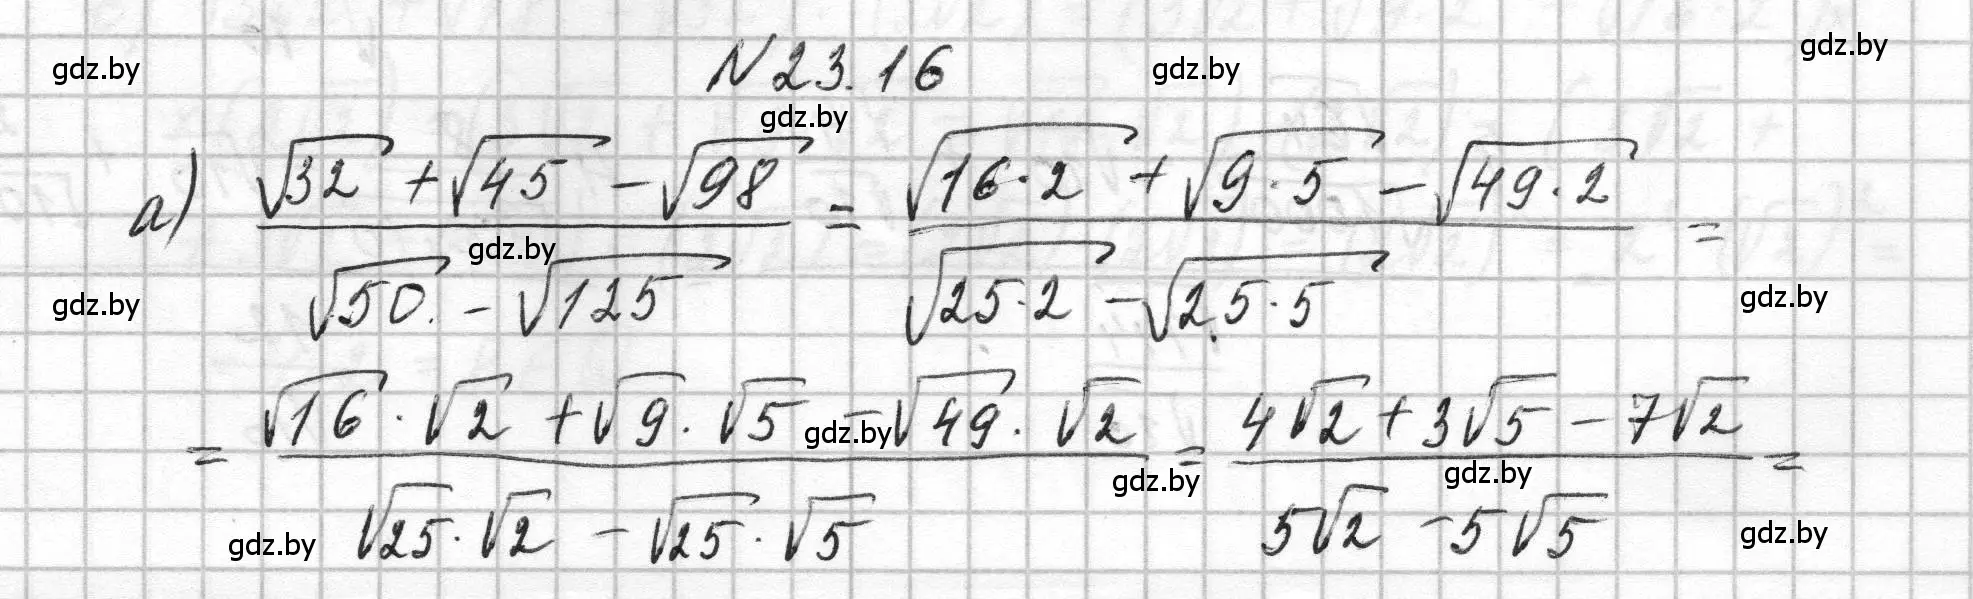 gdz.by
gdz.by
gdz.by
N 23.16
gdz.by
а) (√32 + √45 − √98) / (√50 − √125) = (√(16·2) + √(9·5) − √(49·2)) / (√(25·2) − √(25·5)) =
gdz.by
gdz.by
gdz.by
= (√16 · √2 + √9 · √5 − √49 · √2) / (√25 · √2 − √25 · √5) = (4√2 + 3√5 − 7√2) / (5√2 − 5√5) =
gdz.by
gdz.by
gdz.by
gdz.by
gdz.by